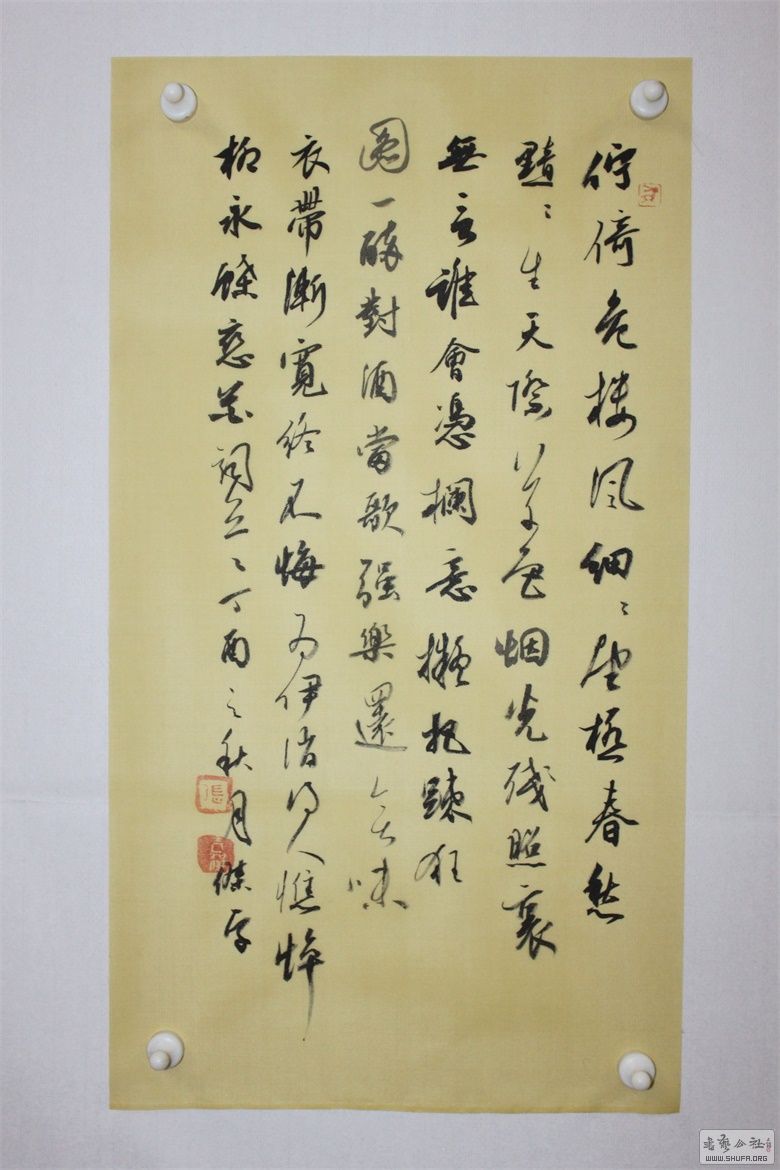 佇倚危楼风細〻望極春愁
黯〻生天際草色烟光殘照裏
無言誰會憑欄意擬把踈狂
圖一醉對酒當歌强樂還無味
衣帶漸寬終不悔为伊消得人憔悴
柳永蝶戀花詞之二丁酉之秋月傑書
張
书艺公社
WWW.SHUFA.ORG